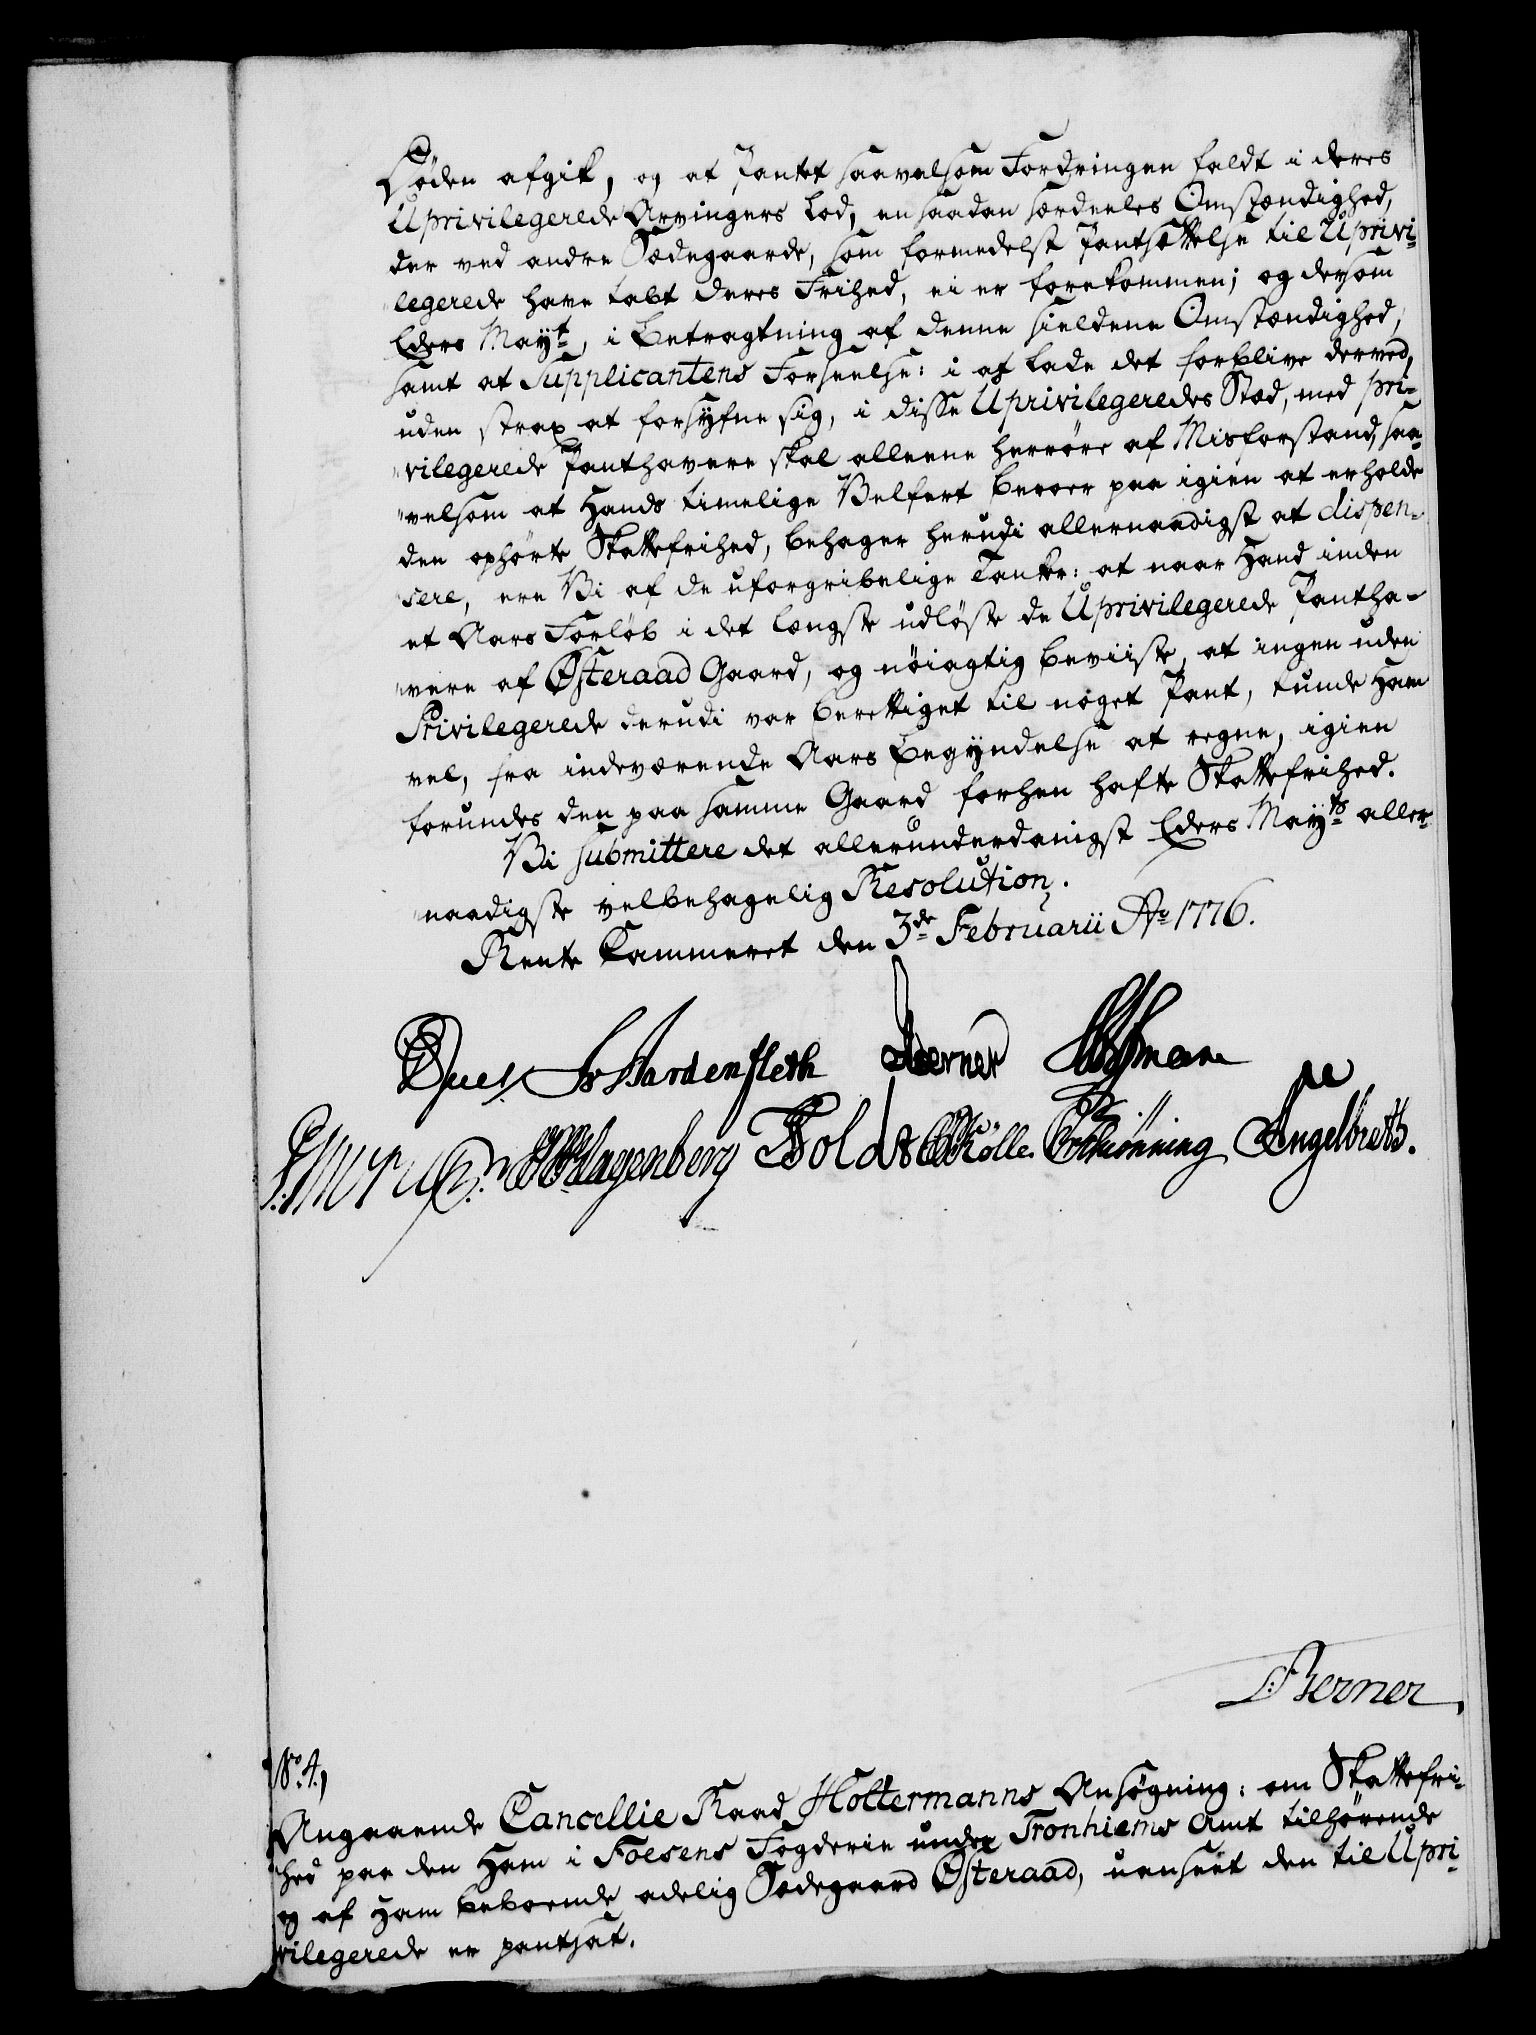 Døden afgik, og at Pantet saavelsom Fordringen faldt i deres
Uprivilegerede Arvingers Lod, en saadan særdeeles Omstændighed,
der ved andre Sædegaarde, som formedelst Pantsættelse til Uprivi-
legerede have tabt deres Frihed, ei er forekommen; og dersom
Eders Mayt, i Betragtning af denne sieldene Omstændighed,
samt at Supplicantens Forseelse: i at lade det forblive derved,
uden strax at forsyne sig, i disse Uprivilegeredes Stæd, med pri-
vilegerede Panthavere skal alleene herröre af Misforstand, saa-
velsom at Hands timelige Velfert beroer paa igien at erholde
den ophørte Skattefrihed, behager herudi allernaadigst at dispen-
sere, ere Vi af de uforgribelige Tanker: at naar Hand inden
et Aars Forløb i det længste udløste de Uprivilegerede Pantha-
vere af Østeraad Gaard, og nöiagtig beviiste, at ingen uden
Privilegerede derudi var berettiget til noget Pant, kunde Ham
vel, fra indeværende Aars Begyndelse at regne, igien
forundes den paa samme Gaard forhen hafte Skattefrihed.
Vi submittere det allerunderdanigst Eders Mayts aller-
naadigste velbehagelig Resolution.
Rente Cammeret den 3de Februarii Ao 1776.
Juel Ardenfleth Berner Hofman
Klagenberg Toldt Kölle Schiønning Engelbreth.
Berner
No. 4,
Angaaende Cancellie Raad Holtermanns Ansøgning: om Skattefri-
hed paa den Ham i Foesens Fogderie under Tronhiems Amt tilhørende
og af Ham beboende adelig Sædegaard Østeraad, uanseet den til Upri-
vilegerede er pantsat.